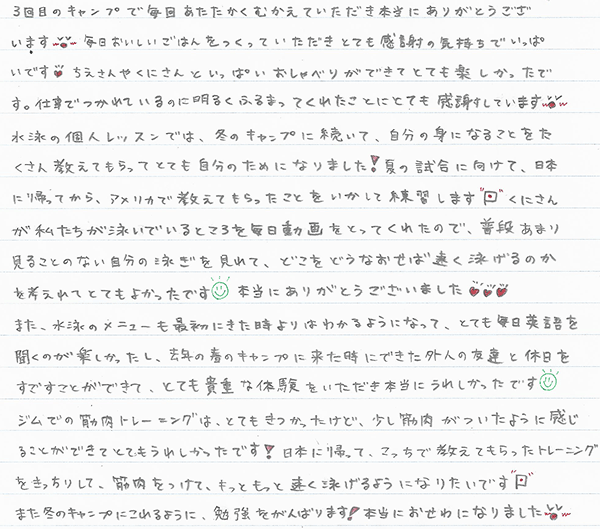 3回目のキャンプで毎回あたたかくむかえていただき本当にありがとうござ
います 毎日おいしいごはんをつくっていただきとても感謝の気持ちでいっぱ
いです ちえさんやくにさんといっぱいおしゃべりができてとても楽しかったで
す。仕事でつかれているのに明るくふるまってくれたことにとても感謝しています
水泳の個人レッスンでは、冬のキャンプに続いて、自分の身になることをた
くさん教えてもらってとても自分のためになりました！夏の試合に向けて、日本
に帰ってから、アメリカで教えてもらったことをいかして練習します くにさん
が私たちが泳いでいるところを毎日動画をとってくれたので、普段あまり
見ることのない自分の泳ぎを見れて、どこをどうなおせば速く泳げるのか
を考えれてとてもよかったです 本当にありがとうございました
また、水泳のメニューも最初にきた時よりはわかるようになって、とても毎日英語を
聞くのが楽しかったし、去年の春のキャンプに来た時にできた外人の友達と休日を
すごすことができて、とても貴重な体験をいただき本当にうれしかったです
ジムでの筋肉トレーニングは、とてもきつかったけど、少し筋肉がついたように感じ
ることができてとてもうれしかったです！日本に帰って、こっちで教えてもらったトレーニング
をきっちりして、筋肉をつけて、もっともっと速く泳げるようになりたいです
また冬のキャンプにこれるように、勉強をがんばります！本当におせわになりました